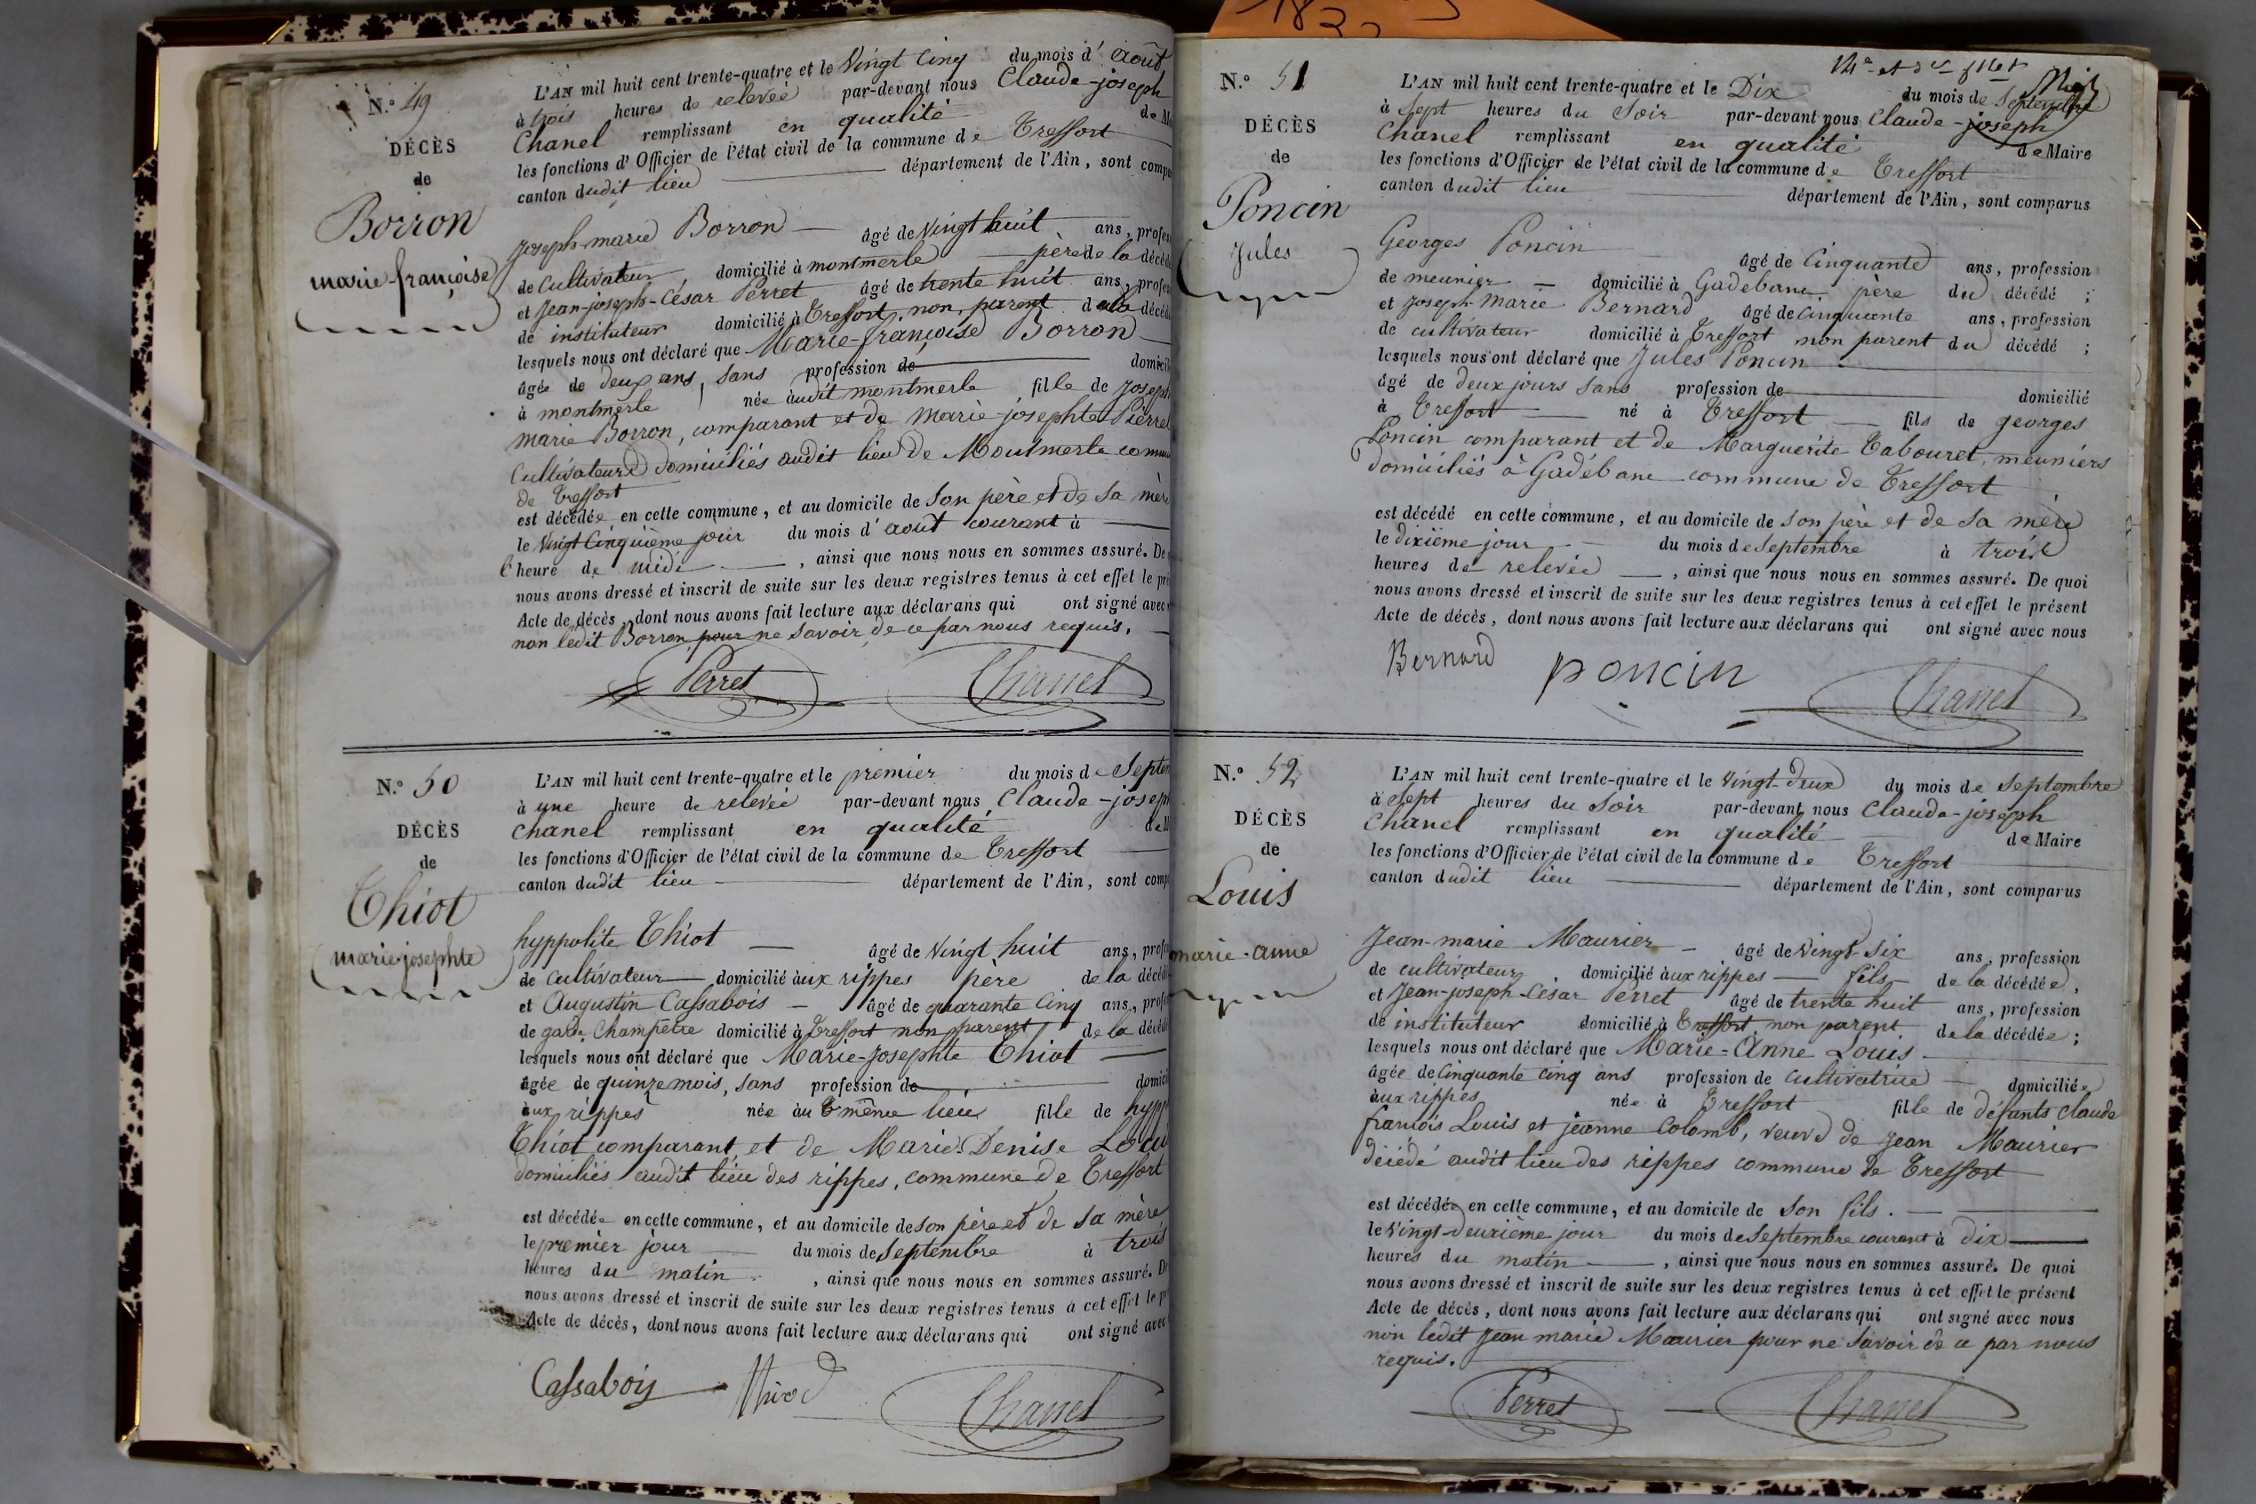 N.º 49
DÉCÈS
de
Borron
marie-françoise
L'AN mil huit cent trente-quatre et le Vingt Cinq du mois d'août
à trois heures de relevée par-devant nous Claude-joseph
Chanel remplissant en qualité de
les fonctions d'Officier de l'état civil de la commune de Treffort
canton dudit lieu département de l'Ain, sont
joseph-marie Borron âgé de Vingt huit ans,
de cultivateur domicilié à montmerle père de la
et jean-joseph-César Perret âgé de trente huit ans,
de instituteur domicilié à Treffort, non parent de la
lesquels nous ont déclaré que Marie-françoise Borron
âgée de deux ans, sans profession de
à montmerle née audit montmerle fille de joseph
marie Borron, comparant et de marie-josephte Pierrel
Cultivateurs domiciliés audit lieu de Montmerle
de Treffort
est décédée en cette commune, et au domicile de son père et de sa mère
le Vingt Cinquième jour du mois d'août courant à
l'heure de midi, ainsi que nous nous en sommes assuré. De
nous avons dressé et inscrit de suite sur les deux registres tenus à cet effet le
Acte de décès, dont nous avons fait lecture aux déclarans qui ont signé avec
non ledit Borron pour ne savoir, de ce par nous requis.
Perret Chanel
N.º 50
DÉCÈS
de
Thiot
marie josephte
L'AN mil huit cent trente-quatre et le premier du mois de
à une heure de relevée par-devant nous Claude-joseph
Chanel remplissant en qualité
les fonctions d'Officier de l'état civil de la commune de Treffort
canton dudit lieu département de l'Ain, sont
hyppolite Thiot âgé de Vingt huit ans,
de cultivateur domicilié aux rippes père de la
et Augustin Cassabois âgé de quarante Cinq ans,
de garde champêtre domicilié à Treffort non parent de la
lesquels nous ont déclaré que Marie-Josephte Thiot
âgée de quinze mois, sans profession de
aux rippes née au même lieu fille de
Thiot comparant, et de Marie-Denise
domiciliés audit lieu des rippes, commune de Treffort
est décédée en cette commune, et au domicile de son père et de sa mère
le premier jour du mois de septembre à trois
heures du matin, ainsi que nous nous en sommes assuré.
nous avons dressé et inscrit de suite sur les deux registres tenus à cet effet le
Acte de décès, dont nous avons fait lecture aux déclarans qui ont signé avec
Cassabois Thiod Chanel
N.º 51
DÉCÈS
de
Poncin
Jules
L'AN mil huit cent trente-quatre et le Dix du mois de Septembre
à Sept heures du Soir par-devant nous Claude-joseph
Chanel remplissant en qualité de Maire
les fonctions d'Officier de l'état civil de la commune de Treffort
canton dudit lieu département de l'Ain, sont comparus
Georges Poncin âgé de Cinquante ans, profession
de meunier domicilié à Gadebane père du décédé ;
et joseph-Marie Bernard âgé de cinquante ans, profession
de cultivateur domicilié à Treffort non parent du décédé ;
lesquels nous ont déclaré que Jules Poncin
âgé de deux jours sans profession de domicilié
à Treffort né à Treffort fils de georges
Poncin comparant et de Marguerite Tabouret, meuniers
domiciliés à Gadébane commune de Treffort
est décédé en cette commune, et au domicile de son père et de sa mère
le dixième jour du mois de septembre à trois
heures de relevée, ainsi que nous nous en sommes assuré. De quoi
nous avons dressé et inscrit de suite sur les deux registres tenus à cet effet le présent
Acte de décès, dont nous avons fait lecture aux déclarans qui ont signé avec nous
Bernard poncin Chanel
N.º 52
DÉCÈS
de
Louis
marie-anne
L'AN mil huit cent trente-quatre et le Vingt-deux du mois de septembre
à sept heures du soir par-devant nous Claude-joseph
Chanel remplissant en qualité de Maire
les fonctions d'Officier de l'état civil de la commune de Treffort
canton dudit lieu département de l'Ain, sont comparus
Jean-marie Maurier âgé de vingt-six ans, profession
de cultivateur, domicilié aux rippes fils de la décédée,
et Jean-joseph-César Perret âgé de trente huit ans, profession
de instituteur domicilié à Treffort non parent de la décédée ;
lesquels nous ont déclaré que Marie-Anne Louis
âgée de cinquante cinq ans profession de cultivatrice domiciliée
aux rippes née à Treffort fille de défunts Claude
françois Louis et jeanne Colomb, veuve de jean Maurier
décédé audit lieu des rippes commune de Treffort
est décédée en cette commune, et au domicile de son fils.
le Vingt-deuxième jour du mois de septembre courant à dix
heures du matin, ainsi que nous nous en sommes assuré. De quoi
nous avons dressé et inscrit de suite sur les deux registres tenus à cet effet le présent
Acte de décès, dont nous avons fait lecture aux déclarans qui ont signé avec nous
non ledit Jean marie Maurier pour ne savoir de ce par nous
requis.
Perret Chanel